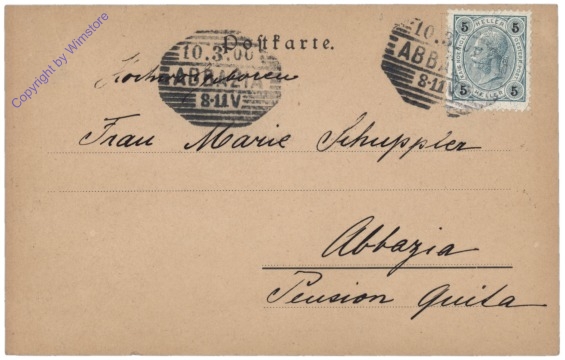 Copyright by Wimstore
Postkarte.
10.3.00
ABBAZIA
8-11V
10.3
ABBA
8-11V
5 HELLER 5
5 HELLER 5
Hochwohlgeboren
Frau Marie Schuppler
Abbazia
Pension Quita